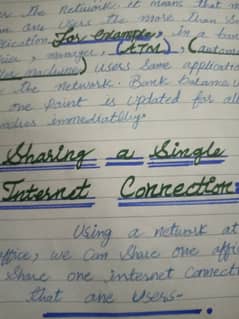 the network. it means that m
one users the more than
For example, in a ban
manager, (ATM), (autom
machine) users same applicatio
the network. Bank balance u
one point is updated for all
immediatly.
Sharing a Single
Internet Connection:
Using a network at
office, we can share one offi
share one internet connecti
that are users-